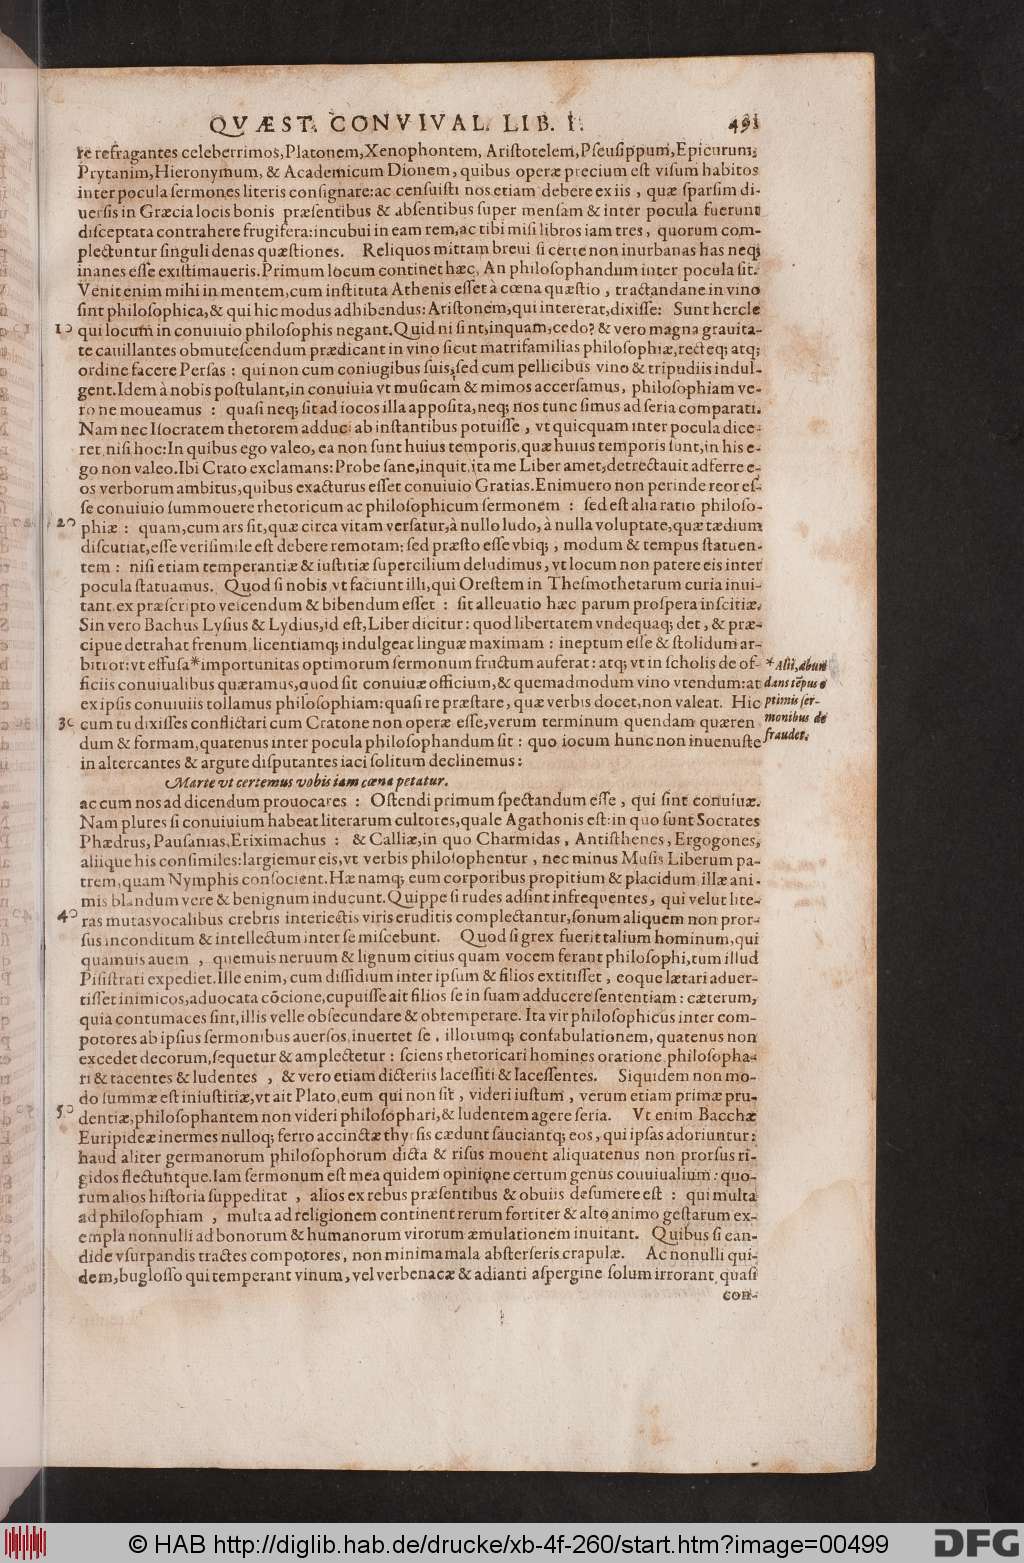 QVÆST. CONVIVAL. LIB. I. 491
re refragantes celeberrimos, Platonem, Xenophontem, Aristotelem, Pseusippum, Epicurum,
Prytanim, Hieronymum, & Academicum Dionem, quibus operæ precium est visum habitos
inter pocula sermones literis consignare: ac censuisti nos etiam debere ex iis, quæ sparsim di-
uersis in Græcia locis bonis præsentibus & absentibus super mensam & inter pocula fuerunt
disceptata contrahere frugifera: incubui in eam rem, ac tibi misi libros iam tres, quorum com-
plectuntur singuli denas quæstiones. Reliquos mittam breui si certe non inurbanas has neq;
inanes esse existimaueris. Primum locum continet hæc, An philosophandum inter pocula sit.
Venit enim mihi in mentem, cum instituta Athenis esset à cœna quæstio, tractandane in vino
sint philosophica, & qui hic modus adhibendus: Aristonem, qui intererat, dixisse: Sunt hercle
10 qui locum in conuiuio philosophis negant. Quid ni sint, inquam, cedo? & vero magna grauita-
te cauillantes obmutescendum prædicant in vino sicut matrifamilias philosophiæ, recteq; atq;
ordine facere Persas: qui non cum coniugibus suis, sed cum pellicibus vino & tripudiis indul-
gent. Idem à nobis postulant, in conuiuia vt musicam & mimos accersamus, philosophiam ve-
ro ne moueamus: quasi neq; sit ad iocos illa apposita, neq; nos tunc simus ad seria comparati.
Nam nec Isocratem rhetorem adduci ab instantibus potuisse, vt quicquam inter pocula dice-
ret, nisi hoc: In quibus ego valeo, ea non sunt huius temporis, quæ huius temporis sunt, in his e-
go non valeo. Ibi Crato exclamans: Probe sane, inquit, ita me Liber amet, detrectauit adferre e-
os verborum ambitus, quibus exacturus esset conuiuio Gratias. Enimuero non perinde reor es-
se conuiuio summouere rhetoricum ac philosophicum sermonem: sed est alia ratio philoso-
20 phiæ: quam, cum ars sit, quæ circa vitam versatur, à nullo ludo, à nulla voluptate, quæ tædium
discutiat, esse verisimile est debere remotam: sed præsto esse vbiq;, modum & tempus statuen-
tem: nisi etiam temperantiæ & iustitiæ supercilium deludimus, vt locum non patere eis inter
pocula statuamus. Quod si nobis vt faciunt illi, qui Orestem in Thesmothetarum curia inui-
tant, ex præscripto vescendum & bibendum esset: sit alleuatio hæc parum prospera inscitiæ.
Sin vero Bachus Lysius & Lydius, id est, Liber dicitur: quod libertatem vndequaq; det, & præ-
cipue detrahat frenum, licentiamq; indulgeat linguæ maximam: ineptum esse & stolidum ar-
bitror: vt effusa*importunitas optimorum sermonum fructum auferat: atq; vt in scholis de of-
ficiis conuiualibus quæramus, quod sit conuiuæ officium, & quemadmodum vino vtendum: at
ex ipsis conuiuiis tollamus philosophiam: quasi re præstare, quæ verbis docet, non valeat. Hic
* Alii, abun
dans tēpus o
ptimis ser-
monibus de
fraudet.
30 cum tu dixisses conflictari cum Cratone non operæ esse, verum terminum quendam quæren
dum & formam, quatenus inter pocula philosophandum sit: quo iocum hunc non inuenuste
in altercantes & argute disputantes iaci solitum declinemus:
Marte vt certemus vobis iam cœna petatur.
ac cum nos ad dicendum prouocares: Ostendi primum spectandum esse, qui sint conuiuæ.
Nam plures si conuiuium habeat literarum cultores, quale Agathonis est: in quo sunt Socrates
Phædrus, Pausanias, Eriximachus: & Calliæ, in quo Charmidas, Antisthenes, Ergogones,
aliique his consimiles: largiemur eis, vt verbis philosophentur, nec minus Musis Liberum pa-
trem, quam Nymphis consocient. Hæ namq; eum corporibus propitium & placidum, illæ ani-
mis blandum vere & benignum inducunt. Quippe si rudes adsint infrequentes, qui velut lite-
40 ras mutas vocalibus crebris interiectis viris eruditis complectantur, sonum aliquem non pror-
sus inconditum & intellectum inter se miscebunt. Quod si grex fuerit talium hominum, qui
quamuis auem, quemuis neruum & lignum citius quam vocem ferant philosophi, tum illud
Pisistrati expediet. Ille enim, cum dissidium inter ipsum & filios extitisset, eoque lætari aduer-
tisset inimicos, aduocata cōcione, cupuisse ait filios se in suam adducere sententiam: cæterum,
quia contumaces sint, illis velle obsecundare & obtemperare. Ita vir philosophicus inter com-
potores ab ipsius sermonibus auersos, inuertet se, illorumq; confabulationem, quatenus non
excedet decorum, sequetur & amplectetur: sciens rhetoricari homines oratione, philosopha-
ri & tacentes & ludentes, & vero etiam dicteriis lacessiti & lacessentes. Siquidem non mo-
do summæ est iniustitiæ, vt ait Plato, eum qui non sit, videri iustum, verum etiam primæ pru-
50 dentiæ, philosophantem non videri philosophari, & ludentem agere seria. Vt enim Bacchæ
Euripideæ inermes nulloq; ferro accinctæ thyrsis cædunt sauciantq; eos, qui ipsas adoriuntur:
haud aliter germanorum philosophorum dicta & risus mouent aliquatenus non prorsus ri-
gidos flectuntque. Iam sermonum est mea quidem opinione certum genus conuiualium: quo-
rum alios historia suppeditat, alios ex rebus præsentibus & obuiis desumere est: qui multa
ad philosophiam, multa ad religionem continent rerum fortiter & alto animo gestarum ex-
empla nonnulli ad bonorum & humanorum virorum æmulationem inuitant. Quibus si can-
dide vsurpandis tractes compotores, non minima mala absterseris crapulæ. Ac nonulli qui-
dem, buglosso qui temperant vinum, vel verbenacæ & adianti aspergine solum irrorant, quasi
con-
© HAB http://diglib.hab.de/drucke/xb-4f-260/start.htm?image=00499
DFG